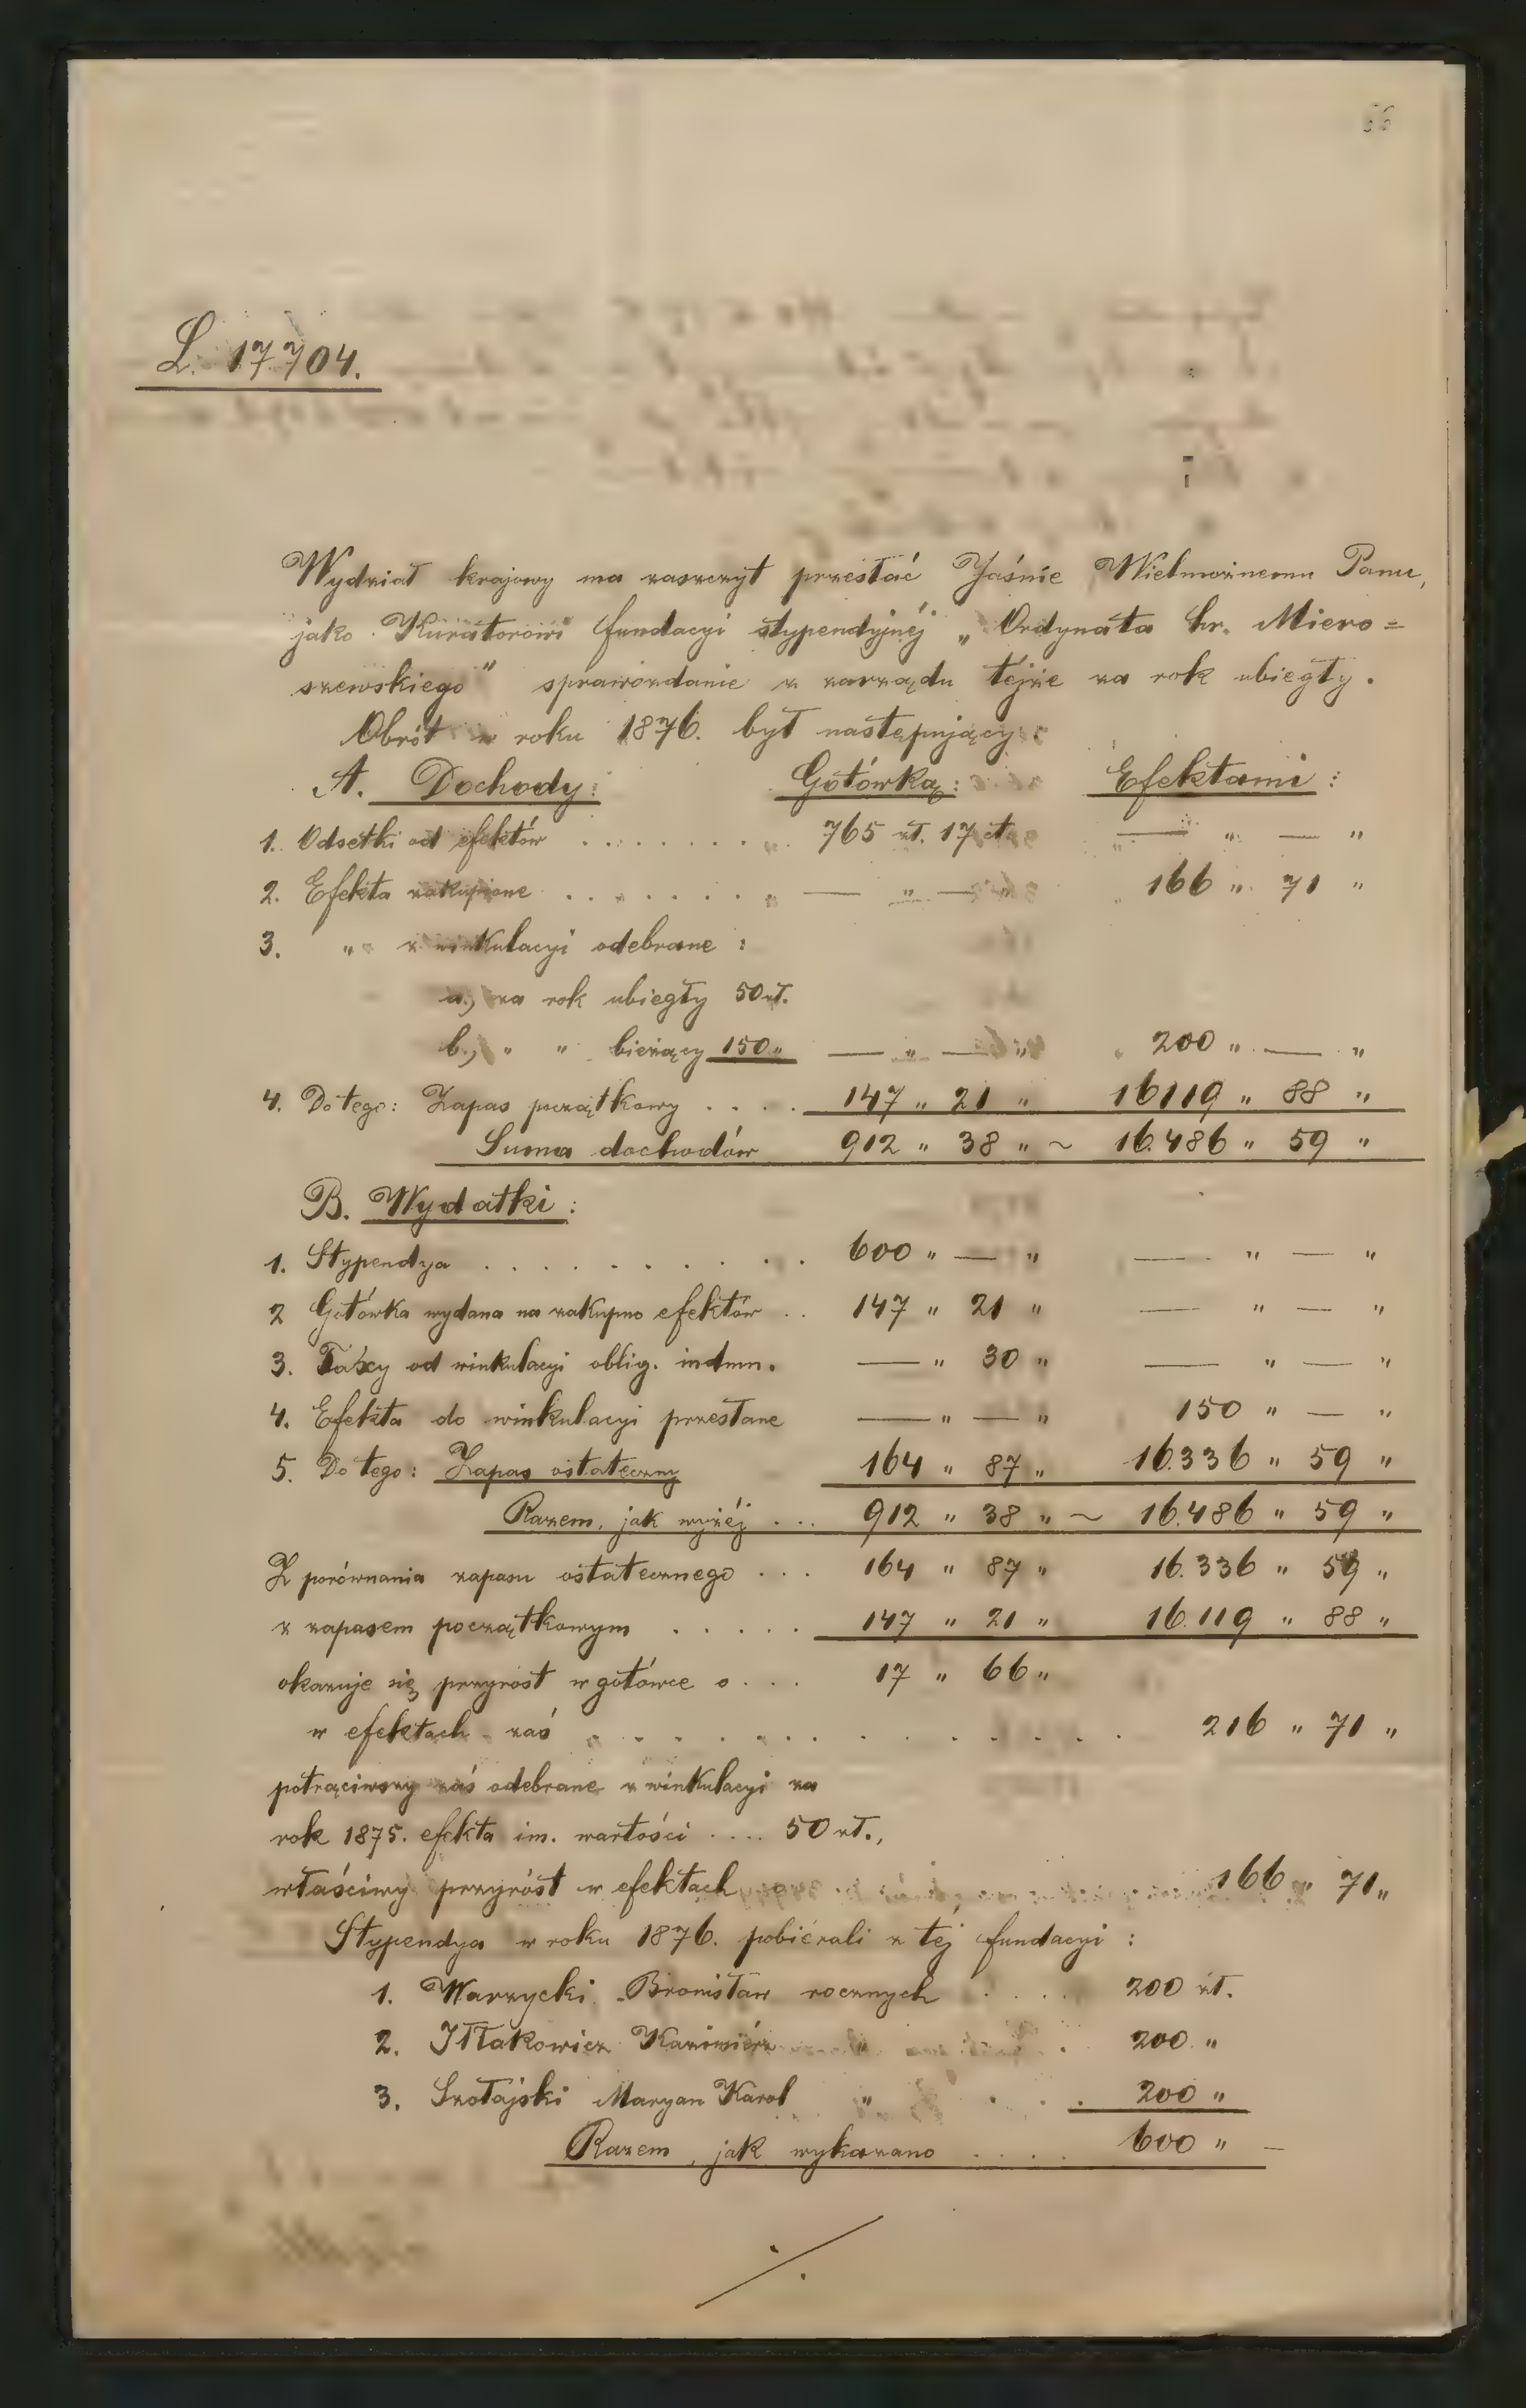 66
L. 17704.
Wydział krajowy ma zaszczyt przesłać Jaśnie Wielmożnemu Panu,
jako Kuratorowi fundacyi stypendyjnéj „Ordynata hr. Miero=
szewskiego" sprawozdanie z zarządu tejże za rok ubiegły.
Obrót w roku 1876. był następujący:
A. Dochody: Gotówką: Efektami:
1. Odsetki od efektów . . . . . . . . 765 zł. 17 ct — " — "
2. Efekta zakupione . . . . . . . . — " — " 166 " 71 "
3. " z winkulacyi odebrane:
a.) za rok ubiegły 50 zł.
b.) " " bieżący 150 " — " — " 200 " — "
4. Do tego: Zapas początkowy . . . . 147 " 21 " 16119 " 88 "
Suma dochodów 912 " 38 " ~ 16.486 " 59 "
B. Wydatki:
1. Stypendya . . . . . . . . . 600 " — " — " — "
2 Gotówka wydana na zakupno efektów . . 147 " 21 " — " — "
3. Taxy od winkulacyi oblig. indmn. — " 30 " — " — "
4. Efekta do winkulacyi przesłane — " — " 150 " — "
5. Do tego: Zapas ostateczny 164 " 87 " 16.336 " 59 "
Razem, jak wyżéj . . . 912 " 38 " ~ 16.486 " 59 "
Z porównania zapasu ostatecznego . . . 164 " 87 " 16.336 " 59 "
z zapasem początkowym . . . . . 147 " 21 " 16.119 " 88 "
okazuje się przyrost w gotówce o . . . 17 " 66 "
w efektach zaś . . . . . . . . . . . . 216 " 71 "
potrąciwszy zaś odebrane z winkulacyi za
rok 1875. efekta im. wartości .... 50 zł.,
właściwy przyróst w efektach 166 " 71 "
Stypendya w roku 1876. pobiérali z téj fundacyi:
1. Warzycki Bronisław rocznych . . . . 200 zł.
2. Iłłakowicz Kazimiérz " . 200 "
3. Szołajski Maryan Karol " . . . 200 "
Razem, jak wykazano . . . . 600 " —
./.